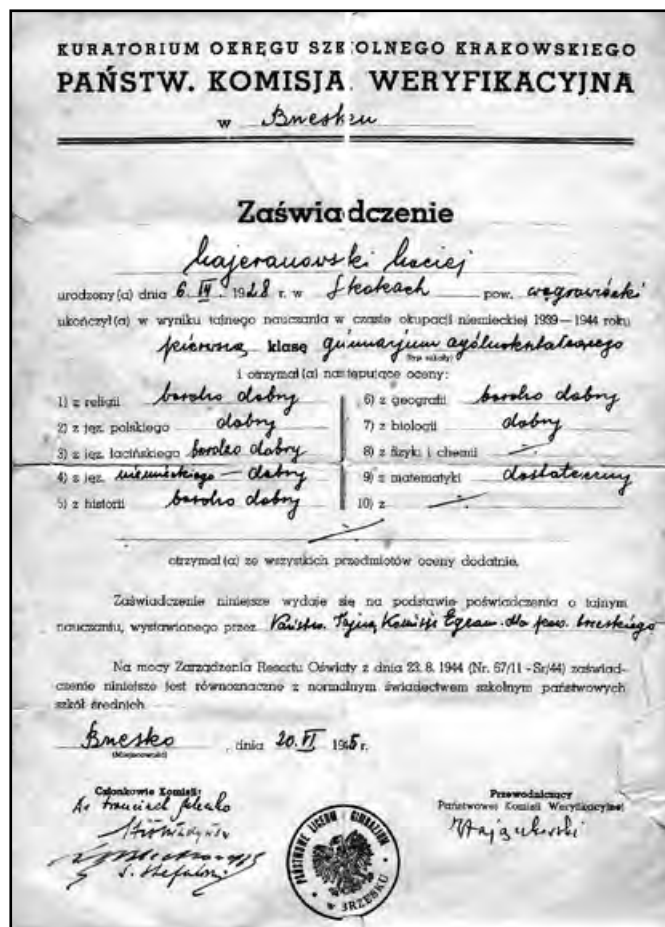 KURATORIUM OKRĘGU SZKOLNEGO KRAKOWSKIEGO
PAŃSTW. KOMISJA WERYFIKACYJNA
w Brzesku
Zaświadczenie
Maciej
urodzony(a) dnia 6. IV. 1928 r. w Skokach pow. wągrowiecki
ukończył(a) w wyniku tajnego nauczania w czasie okupacji niemieckiej 1939—1944 roku
pierwszą klasę gimnazjum ogólnokształcącego
(typ szkoły)
i otrzymał(a) następujące oceny:
1) z religii bardzo dobry
2) z jęz. polskiego dobry
3) z jęz. łacińskiego bardzo dobry
4) z jęz. niemieckiego — dobry
5) z historii bardzo dobry
6) z geografii bardzo dobry
7) z biologii dobry
8) z fizyki i chemii
9) z matematyki dostateczny
10) z
otrzymał(a) ze wszystkich przedmiotów oceny dodatnie.
Zaświadczenie niniejsze wydaje się na podstawie poświadczenia o tajnym
nauczaniu, wystawionego przez Państw. Tajną Komisję Egzam. dla pow. brzeskiego
Na mocy Zarządzenia Resortu Oświaty z dnia 23. 8. 1944 (Nr. 67/11 - Sr/44) zaświad-
czenie niniejsze jest równoznaczne z normalnym świadectwem szkolnym państwowych
szkół średnich.
Brzesko, dnia 20. VI 1945 r.
(Miejscowość)
Członkowie Komisji:
S. Stefański
Przewodniczący
Państwowej Komisji Weryfikacyjnej
PAŃSTWOWE LICEUM I GIMNAZJUM
w BRZESKU